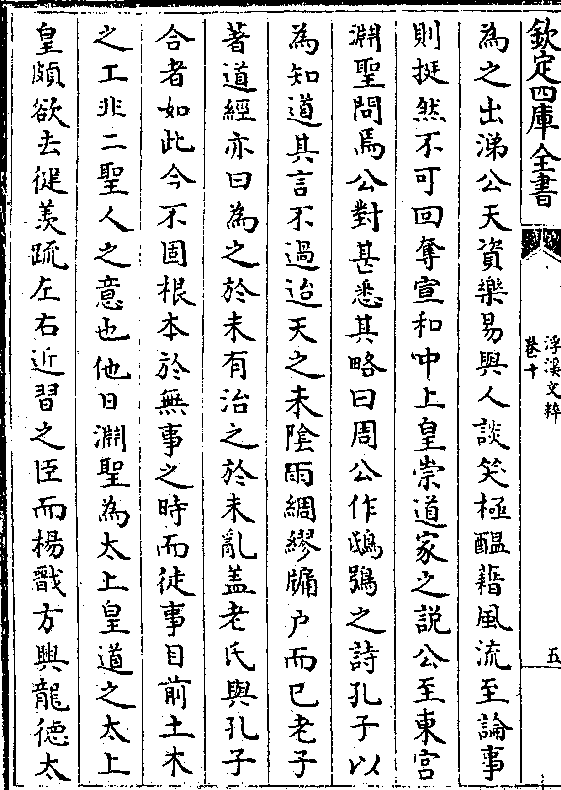 欽定四庫全書
浮溪文粹
卷十
五
為之出涕公天資樂易與人談笑極醖藉風流至論事
則挺然不可回奪宣和中上皇崇道家之說公至東宮
淵聖問焉公對甚悉其略曰周公作鴟鴞之詩孔子以
為知道其言不過迨天之未陰雨綢繆牖户而已老子
著道經亦曰為之於未有治之於未亂盖老氏與孔子
合者如此今不固根本於無事之時而徒事目前土木
之工非二聖人之意也他日淵聖為太上皇道之太上
皇頗欲去健羨疏左右近習之臣而楊戩方興龍德太